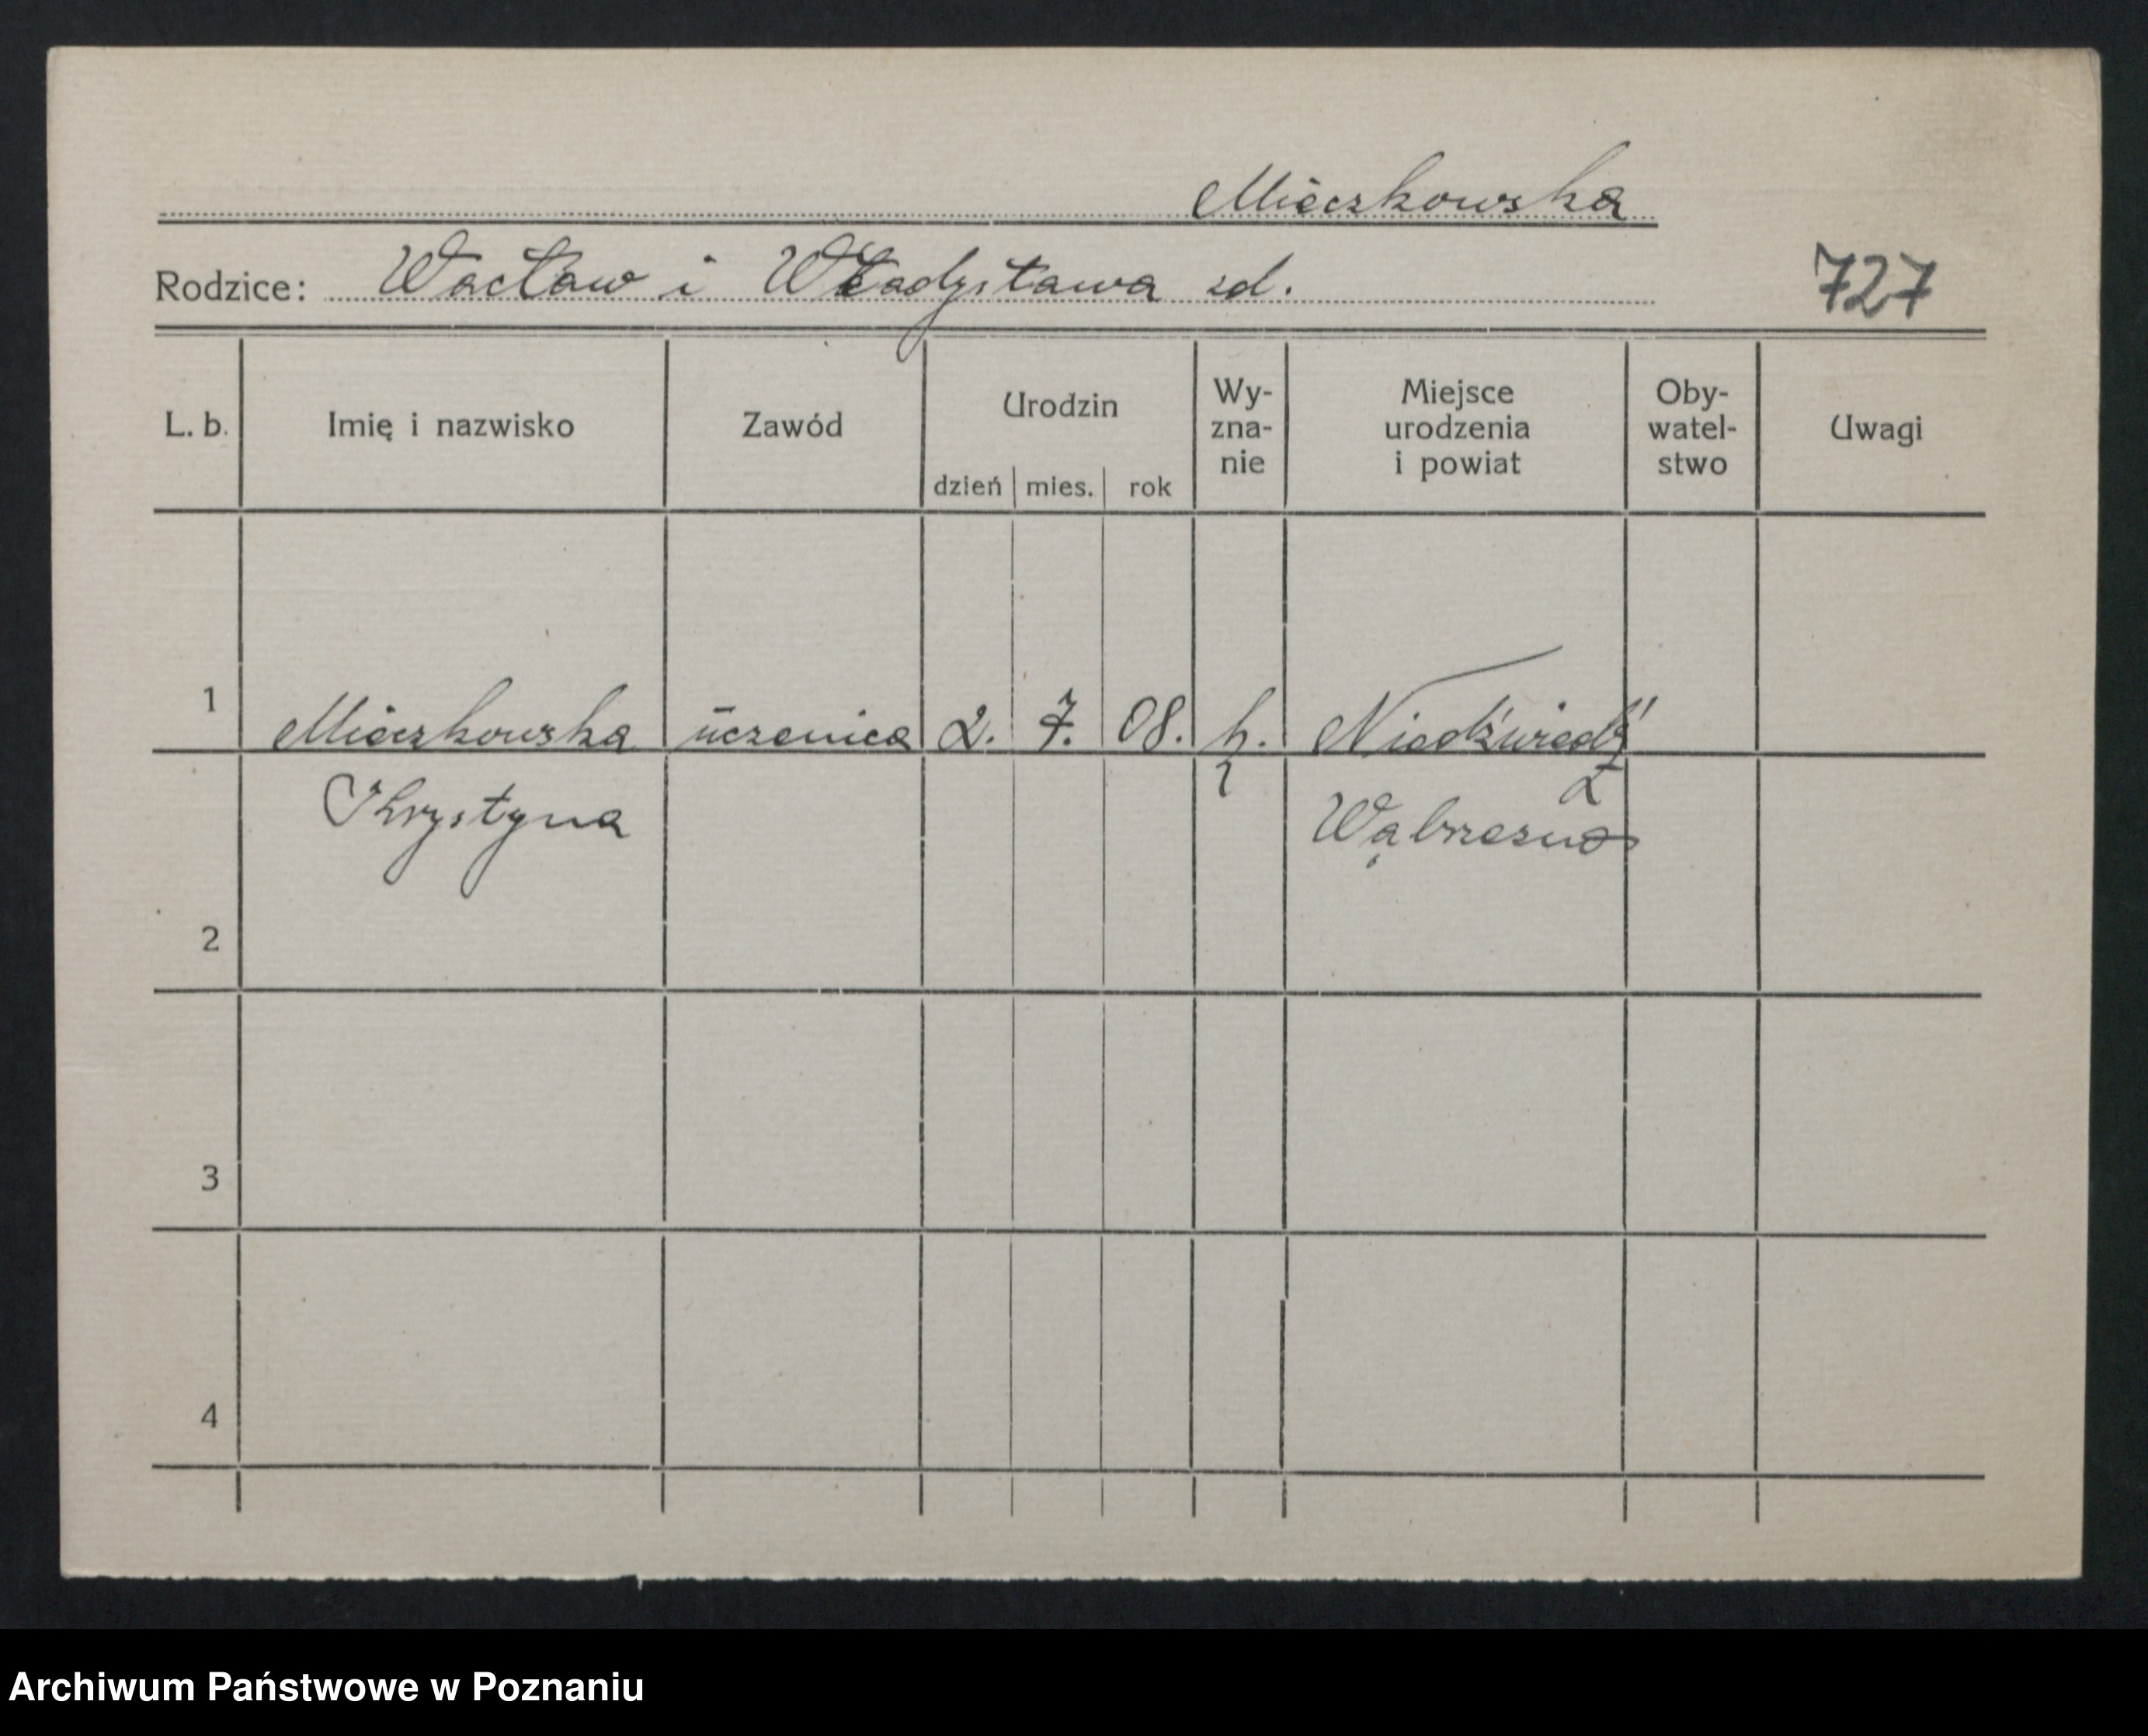 Mieczkowska
Rodzice: Wacław i Władysława zd.
727
L. b. Imię i nazwisko Zawód Urodzin dzień mies. rok Wy-zna-nie Miejsce urodzenia i powiat Oby-watel-stwo Uwagi
1 Mieczkowska uczenica 2. 7. 08. k. Niedźwiedź
Krystyna Wąbrzezno
2
3
4
Archiwum Państwowe w Poznaniu